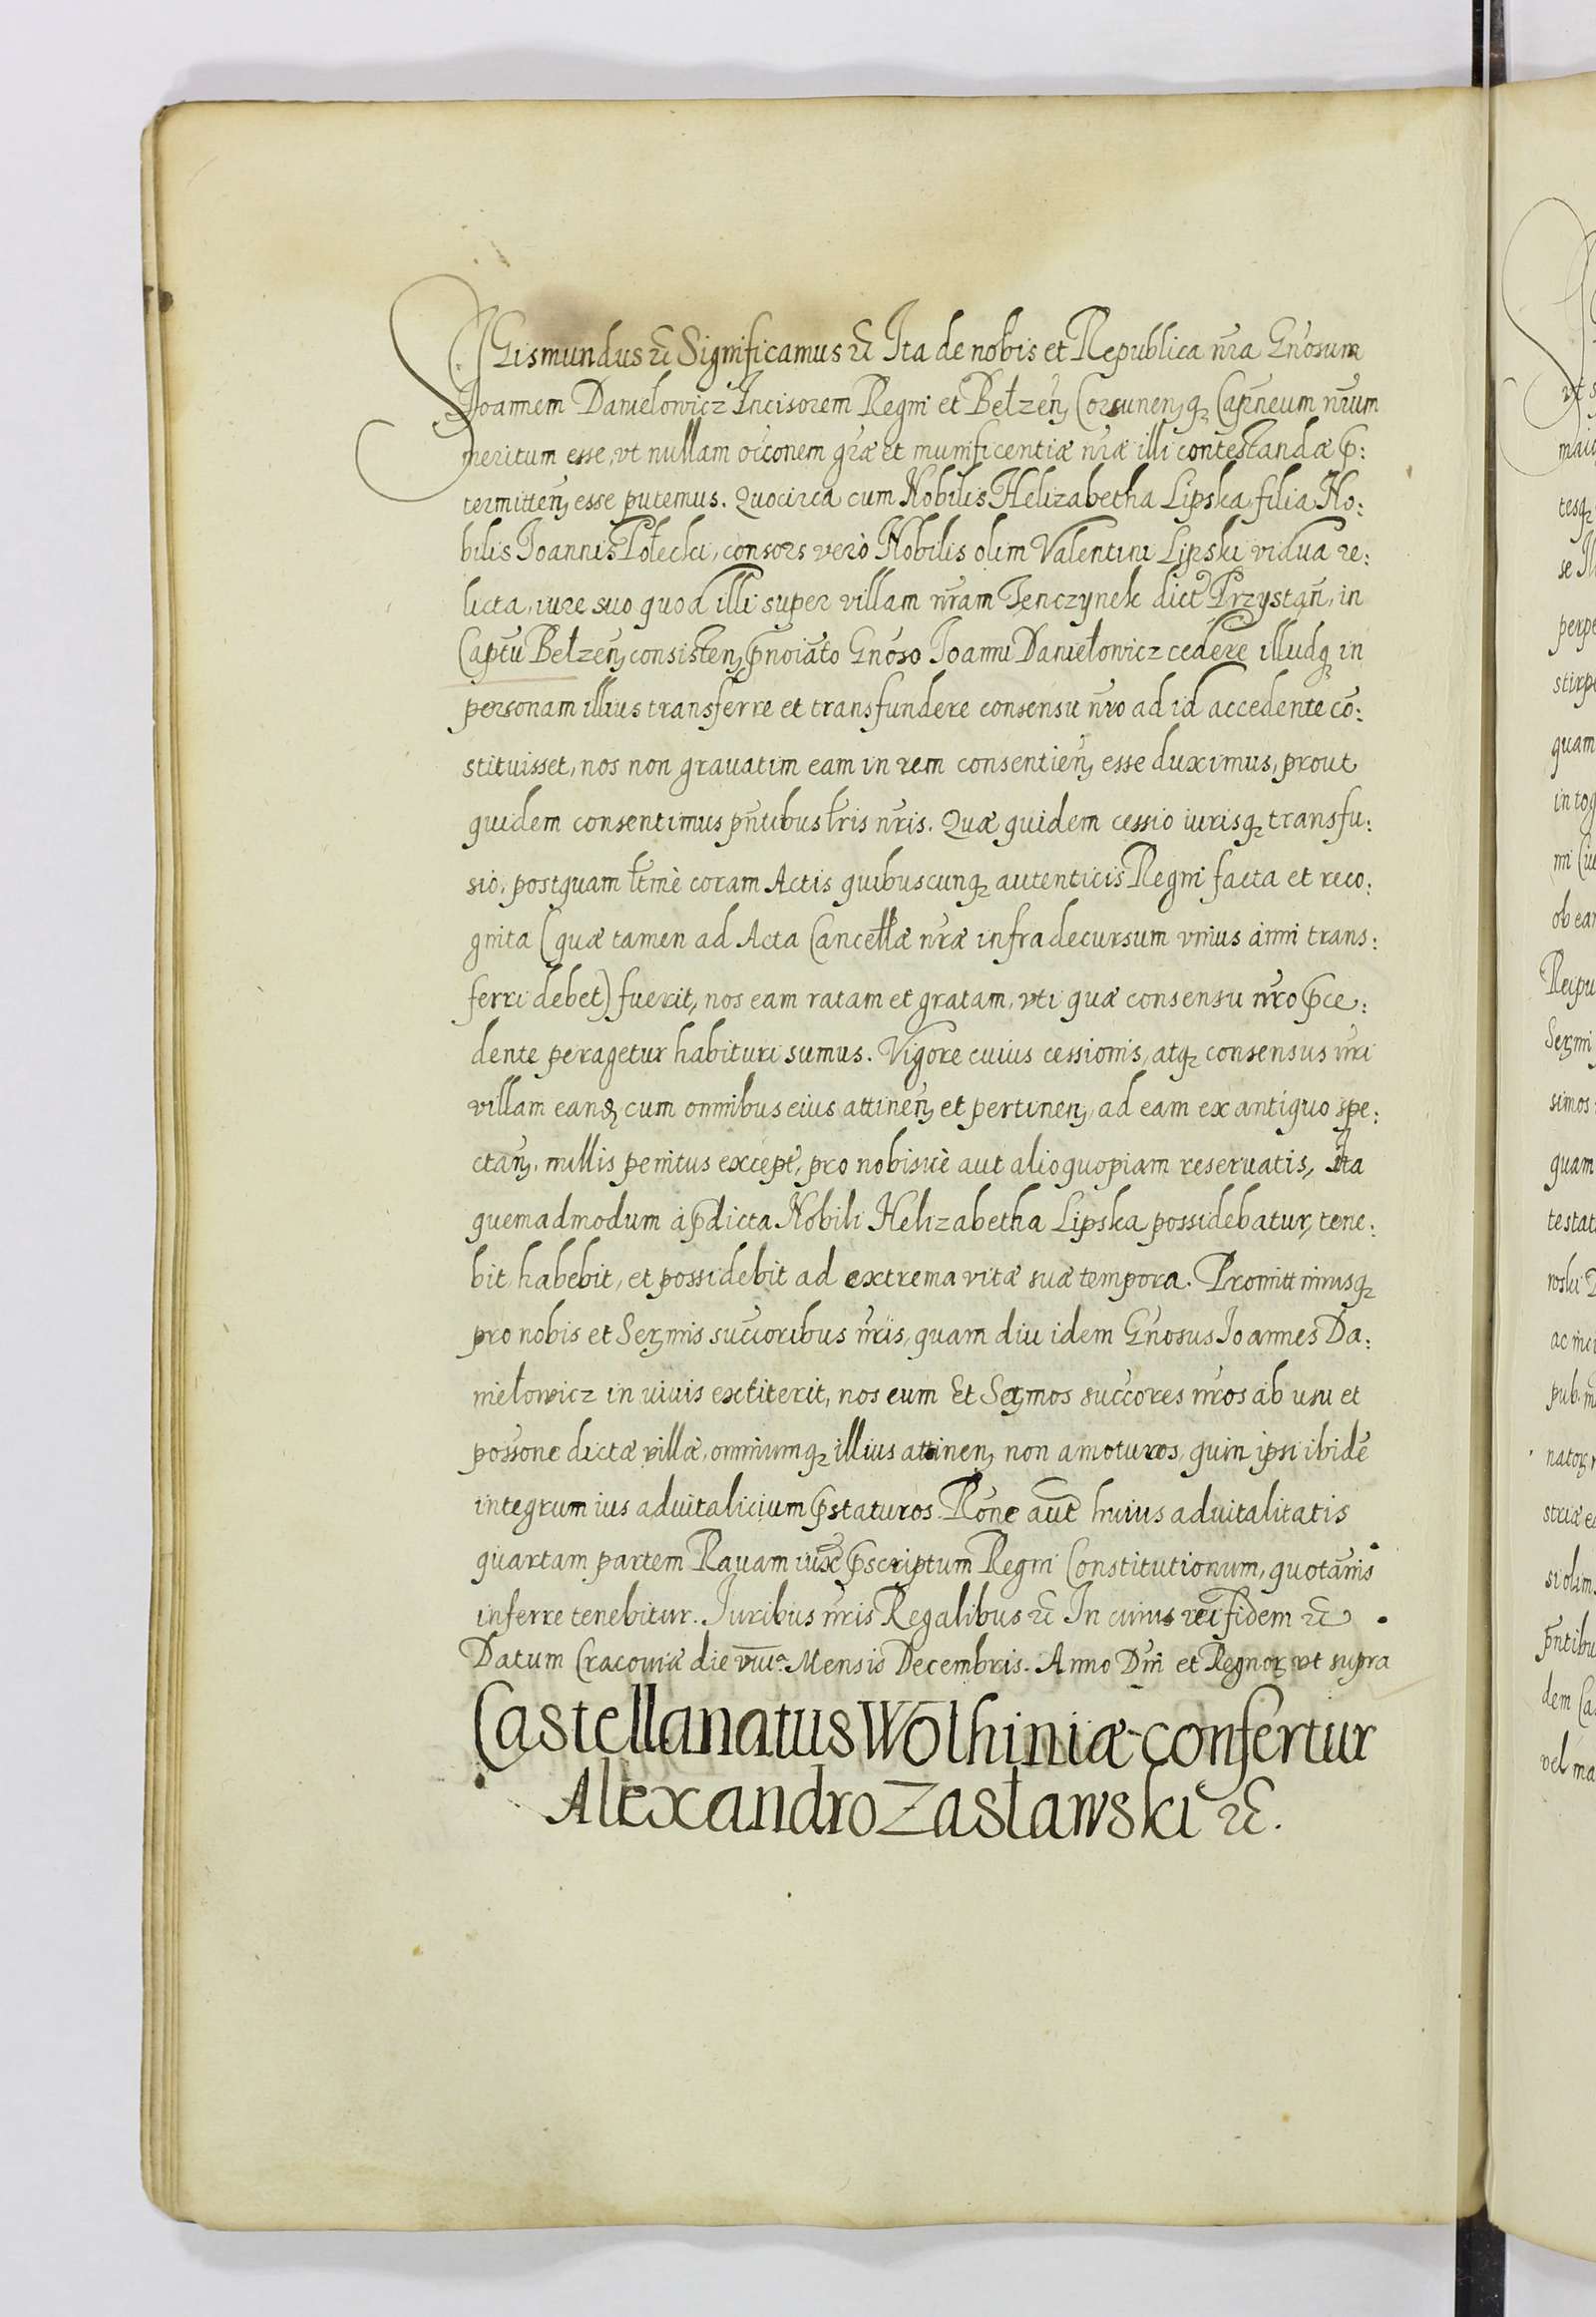 SIGismundus ec̄ Significamus ec̄ Ita de nobis et Republica nr̄a Gn̄osum
Joannem Daniełowicz Incisorem Regni et Bełzen̄, Corsunen̄ꝗ Capn̄eum nr̄um
meritum esse, vt nullam occ̄onem gr̄æ et munificentiæ nr̄æ illi contestandæ p̄:
termitten̄, esse putemus. Quocirca cum Nobilis Helizabetha Lipska filia No:
bilis Joannis Połecki, consors verò Nobilis olim Valentini Lipski vidua re:
licta, iure suo quod illi super villam nr̄am Jenczynek dict̄ Przystan̄, in
Captū Bełzen̄, consisten̄, p̄noīato Gn̄oso Joanni Daniełowicz cedere illudꝗ in
personam illius transferre et transfundere consensu nr̄o ad id accedente cō:
stituisset, nos non grauatim eam in rem consentien̄, esse duximus, prout
quidem consentimus pn̄tibus lr̄is nr̄is. Quæ quidem cessio iurisꝗ transfu:
sio, postquam lt̄mè coram Actis quibuscunꝗ autenticis Regni facta et reco:
gnita (quæ tamen ad Acta Cancellæ nr̄æ infra decursum vnius anni trans:
ferri debet) fuerit, nos eam ratam et gratam, vti quæ consensu nr̄o p̄ce:
dente peragetur habituri sumus. Vigore cuius cessionis, atꝗ consensus nr̄i
villam eand̄ cum omnibus eius attinen̄, et pertinen̄, ad eam ex antiquo spe:
ctan̄, nullis penitus except̄, pro nobis uè aut alio quopiam reseruatis, Ita
quemadmodum à p̄dicta Nobili Helizabetha Lipska possidebatur, tene:
bit habebit, et possidebit ad extrema vitæ suæ tempora. Promittimusꝗ
pro nobis et Serm̄is succ̄oribus nr̄is, quam diu idem Gn̄osus Joannes Da:
niełowicz in viuis extiterit, nos eum Et Serm̄os succ̄ores nr̄os ab usu et
poss̄one dictæ villæ, omniumꝗ illius attinen̄, non amoturos, quin ipsi ibidē
integrum ius aduitalicium p̄staturos. Rōne aut̄ huius aduitalitatis
quartam partem Rauam iux̄ p̄scriptum Regni Constitutionum, quotannis
inferre tenebitur. Juribus nr̄is Regalibus ec̄ In cuius rei fidem ec̄
Datum Cracouiæ die viiiᵃ. Mensis Decembris. Anno Dn̄i et Regnoꝝ vt supra
Castellanatus Wolhiniæ confertur
Alexandro Zasławski ec̄.